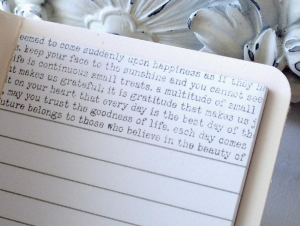 eemed to come suddenly upon happiness as if they
keep your face to the sunshine and you cannot see
life is continuous small treats. a multitude of small
it makes us grateful; it is gratitude that makes us
on your heart that every day is the best day of th
may you trust the goodness of life. each day comes
future belongs to those who believe in the beauty of